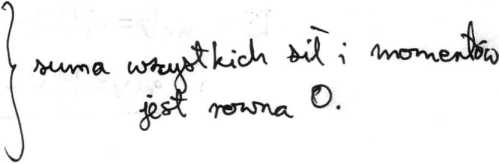 suma wszystkich sił i momentów
jest rowna 0.